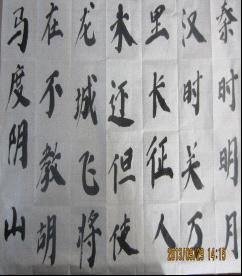 秦时明月
汉时关万
里长征人
未还但使
龙城飞将
在不教胡
马度阴山